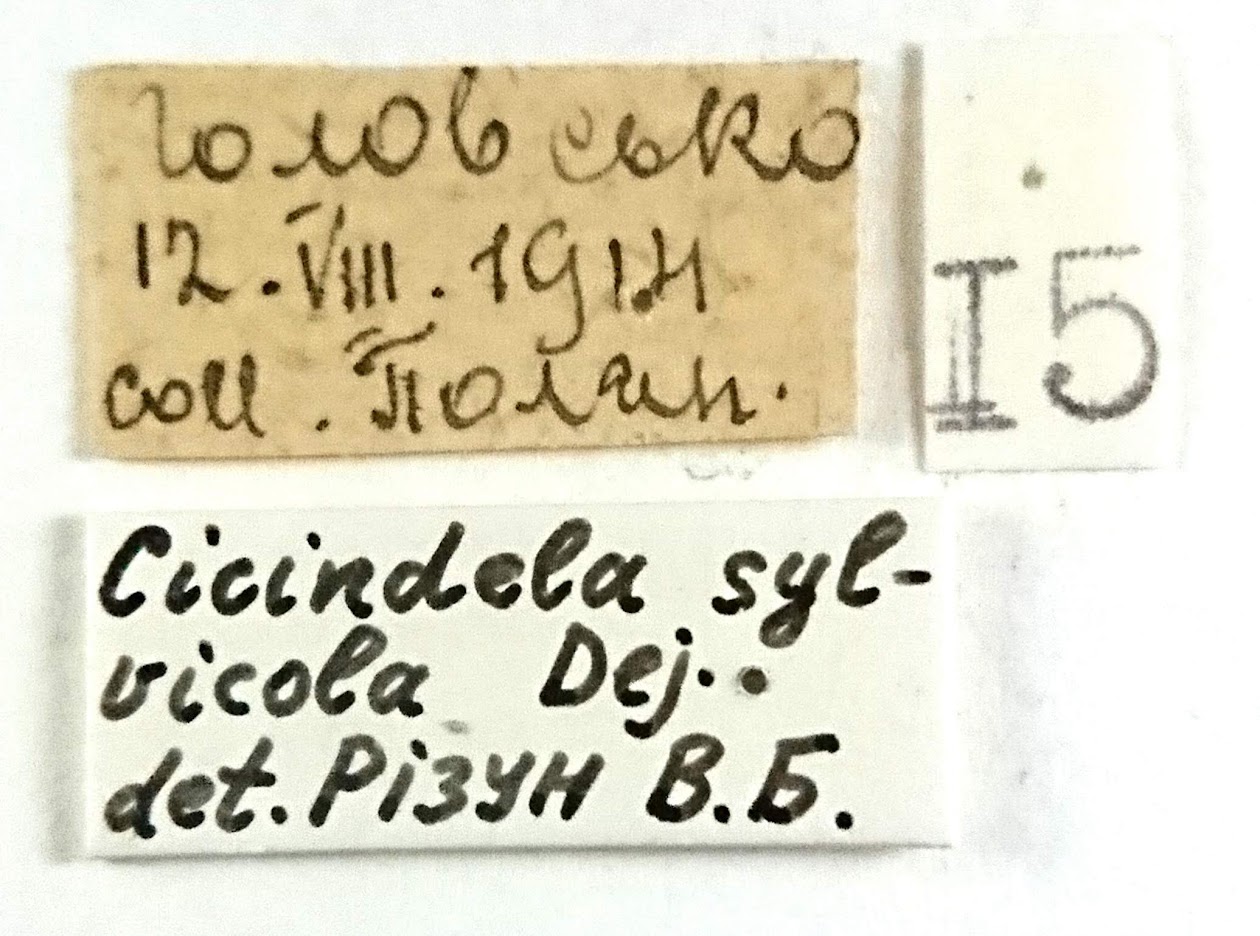 Головсько
12.VIII.1914
coll. Полян.
I5
Cicindela syl-
vicola Dej..
det. Різун В.Б.